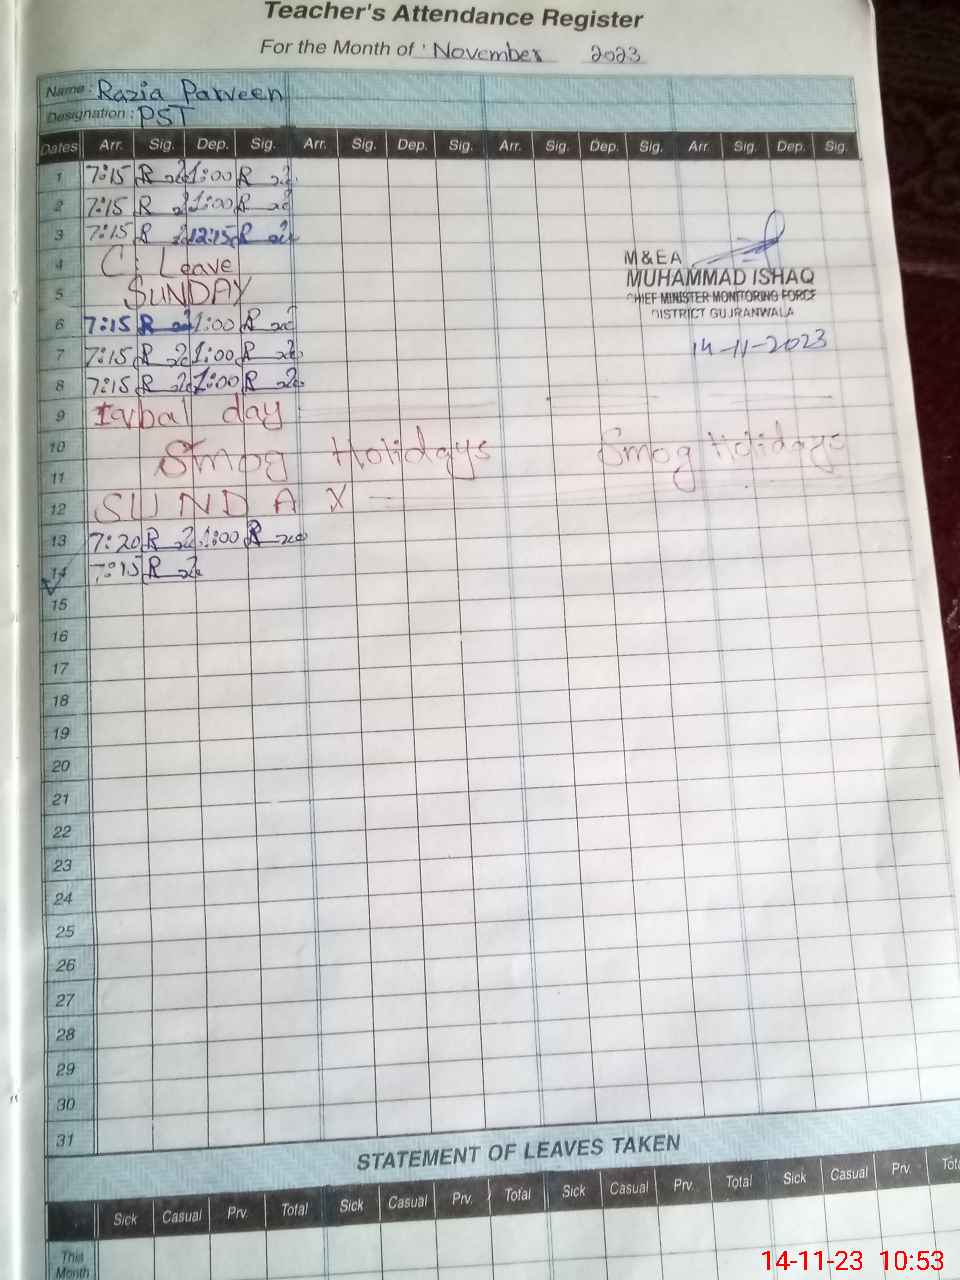 Teacher's Attendance Register
For the Month of November 2023
Name: Razia Parveen
Designation: PST
Dates Arr. Sig. Dep. Sig. Arr. Sig. Dep. Sig. Arr. Sig. Dep. Sig. Arr. Sig. Dep. Sig.
1 7:15 R 1:00 R
2 7:15 R 1:00 R
3 7:15 R 12:15 R
4 C: Leave
M & E A
5 SUNDAY
MUHAMMAD ISHAQ
CHIEF MINISTER MONITORING FORCE
DISTRICT GUJRANWALA
6 7:15 R 1:00 R
14-11-2023
7 7:15 R 1:00 R
8 7:15 R 1:00 R
9 Iqbal day
10 Smog Holidays Smog Holidays
11
12 SUNDAY
13 7:20 R 1:00 R
14 7:15 R
15
16
17
18
19
20
21
22
23
24
25
26
27
28
29
30
31
STATEMENT OF LEAVES TAKEN
Sick Casual Prv. Total Sick Casual Prv. Total Sick Casual Prv. Total Sick Casual Prv. Tota
This
Month
14-11-23 10:53